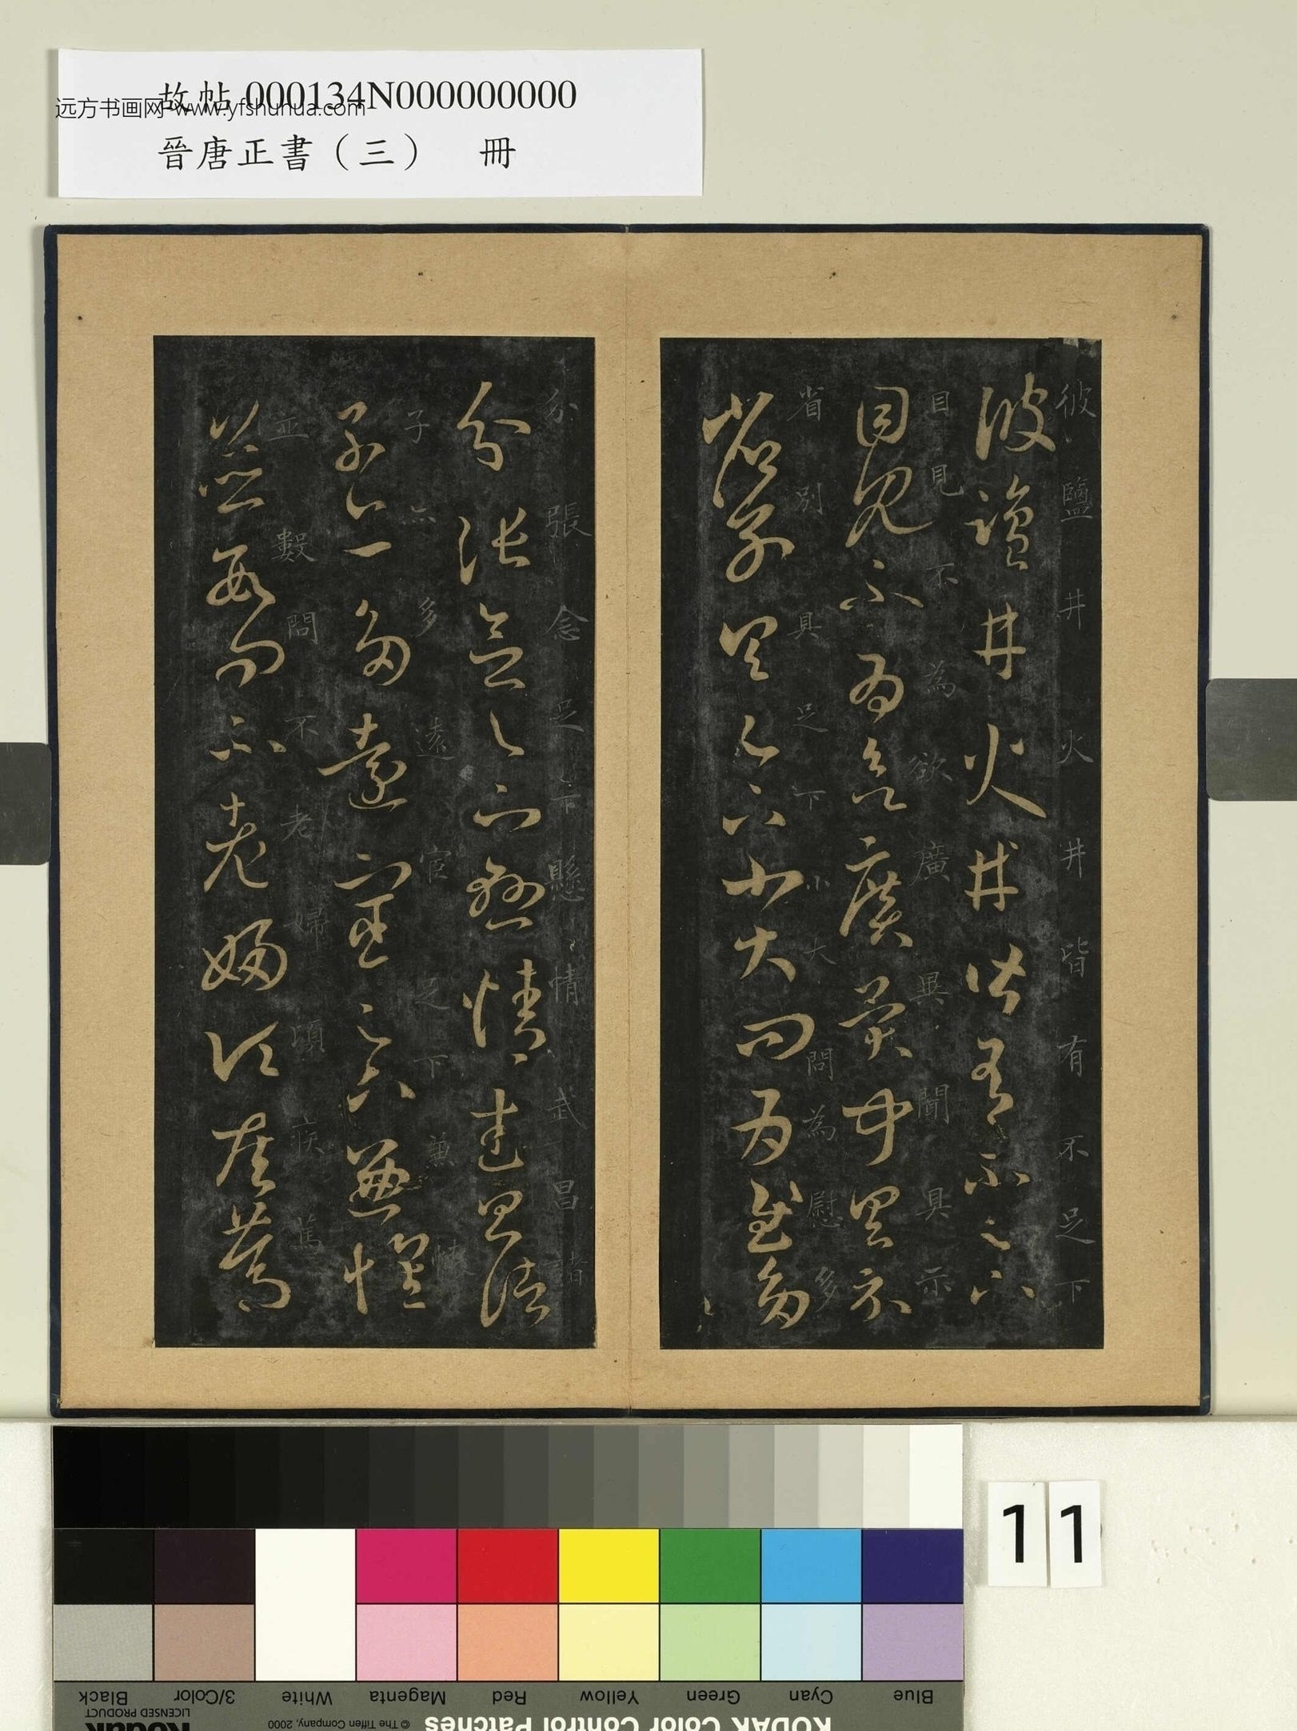 故帖 000134N000000000
远方书画网-www.yfshuhua.com
晉唐正書（三） 冊
彼鹽井火井皆有不足下
彼鹽井火井皆有不足下
目見不為欲廣異聞具示
目見不為欲廣異聞具示
省別具足下小大問為慰多
省別具足下小大問為慰多
分張念足下懸情武昌諸
分張念足下懸情武昌諸
子亦多遠宦足下兼懷
子亦多遠宦足下兼懷
並數問不老婦頃疾篤
並數問不老婦頃疾篤
11
Blue
Cyan
Green
Yellow
Red
Magenta
White
3/Color
Black
KODAK Color Control Patches
© The Tiffen Company, 2000
Kodak
LICENSED PRODUCT